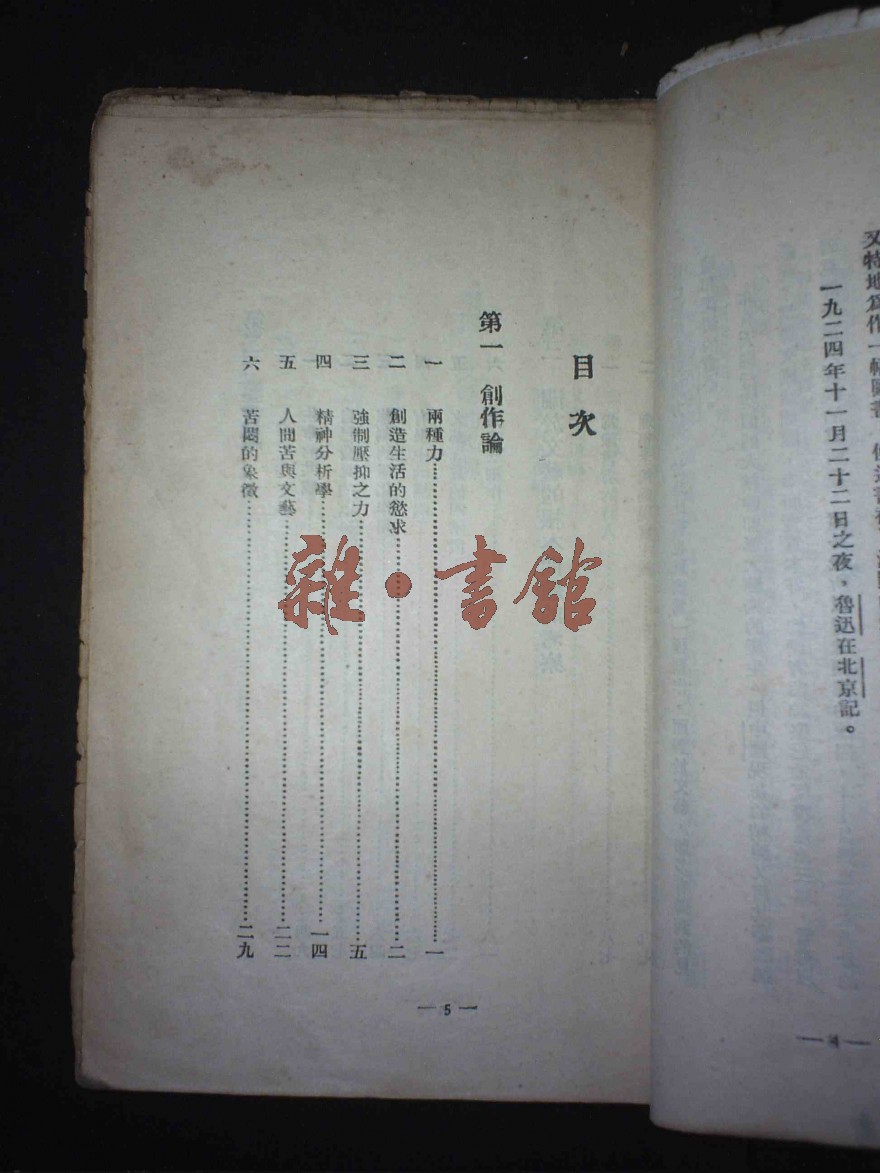 又特地爲作一幀圖畫
一九二四年十一月二十二日之夜，魯迅在北京記。
— 4 —
目次
第一 創作論
一 兩種力……一
二 創造生活的慾求……二
三 強制壓抑之力……五
四 精神分析學……一四
五 人間苦與文藝……二二
六 苦悶的象徵……二九
— 5 —
雜•書館